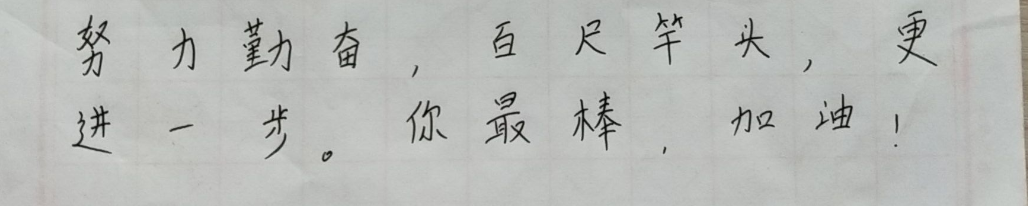 努力勤奋，百尺竿头，更
进一步。你最棒，加油！